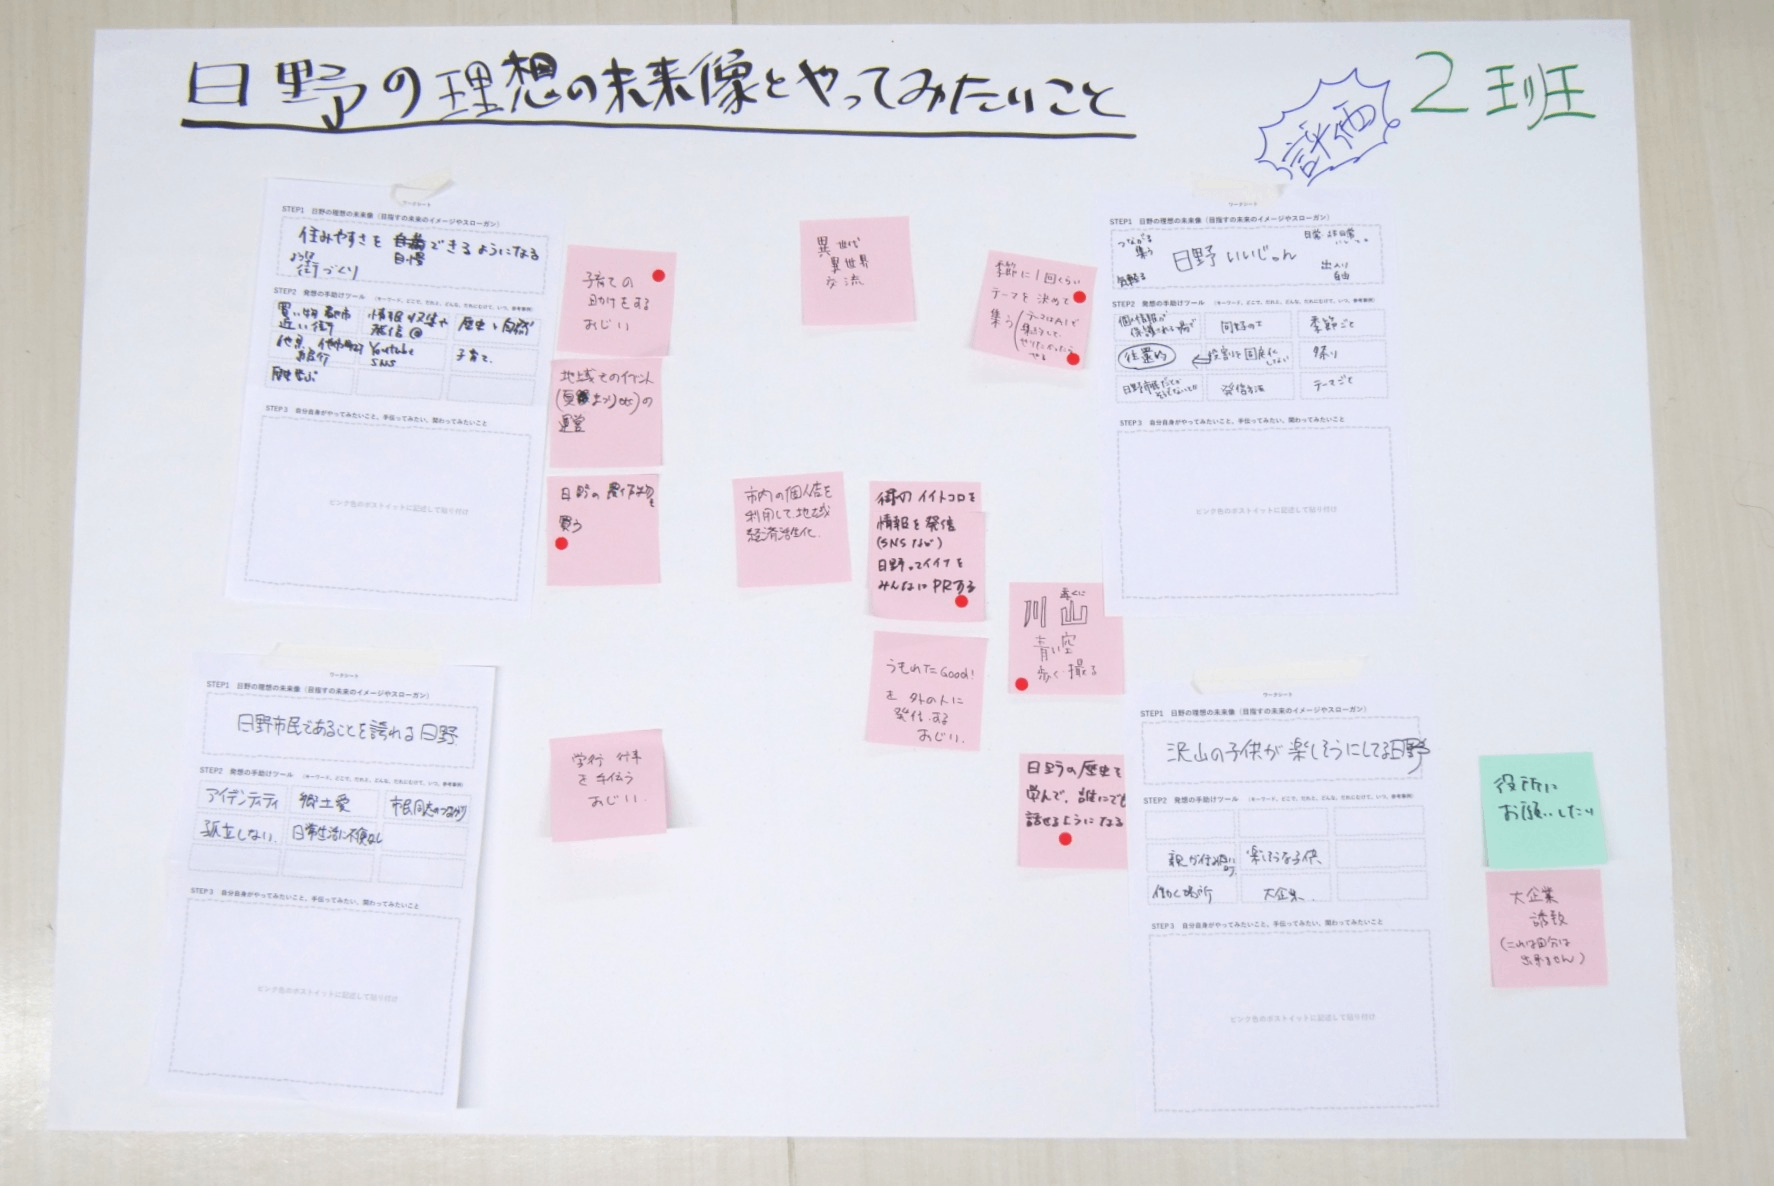 日野の理想の未来像とやってみたいこと
評価
2班
ワークシート
STEP1 日野の理想の未来像（目指すの未来のイメージやスローガン）
住みやすさを
自慢
できるようになる
街づくり
STEP2 発想の手助けツール （キーワード、どこで、だれと、どんな、だれにむけて、いつ、参考事例）
買い物 都市
近い街
情報収集や
発信@
歴史と自然
Youtube
SNS
子育て、
歴史学ぶ
STEP3 自分自身がやってみたいこと、手伝ってみたい、関わってみたいこと
ピンク色のポストイットに記述して貼り付け
子育ての
助けをする
おじい
地域でのイベント
(夏まつりetc)の
運営
日野の農作物を
買う
異世代
異世界
交流
季節に1回くらい
テーマを決めて
集う
テーマはAIで
市内の個人店を
利用して地域
経済活性化
街のイイトコロを
情報を発信
(SNSなど)
日野ってイイナを
みんなにPRする
うもれたGood!
を 外の人に
発信する
おじい.
川 山
青い空
歩く・撮る
学行 行事
を手伝う
おじい.
日野の歴史を
学んで、誰にでも
話せるようになる
ワークシート
STEP1 日野の理想の未来像（目指すの未来のイメージやスローガン）
つながる
集う
日野 いいじゃん
日常・非日常
出入り
自由
STEP2 発想の手助けツール （キーワード、どこで、だれと、どんな、だれにむけて、いつ、参考事例）
個人情報が
保護される場で
同野の士
季節ごと
役割を固定化
しない
祭り
発信方法
テーマごと
STEP3 自分自身がやってみたいこと、手伝ってみたい、関わってみたいこと
ピンク色のポストイットに記述して貼り付け
ワークシート
STEP1 日野の理想の未来像（目指すの未来のイメージやスローガン）
日野市民であることを誇れる日野.
STEP2 発想の手助けツール （キーワード、どこで、だれと、どんな、だれにむけて、いつ、参考事例）
アイデンティティ
郷土愛
市民同志のつながり
孤立しない.
日常生活に不便なし
STEP3 自分自身がやってみたいこと、手伝ってみたい、関わってみたいこと
ピンク色のポストイットに記述して貼り付け
ワークシート
STEP1 日野の理想の未来像（目指すの未来のイメージやスローガン）
沢山の子供が楽しそうにしてる日野
STEP2 発想の手助けツール （キーワード、どこで、だれと、どんな、だれにむけて、いつ、参考事例）
楽しそうな子供.
働く場所
大企業.
STEP3 自分自身がやってみたいこと、手伝ってみたい、関わってみたいこと
ピンク色のポストイットに記述して貼り付け
役所に
お願いしたい
大企業
誘致
(これは自分は
出来ません)